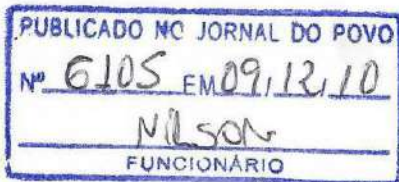 PUBLICADO NO JORNAL DO POVO
Nº 6105 EM 09,12,10
NILSON
FUNCIONÁRIO